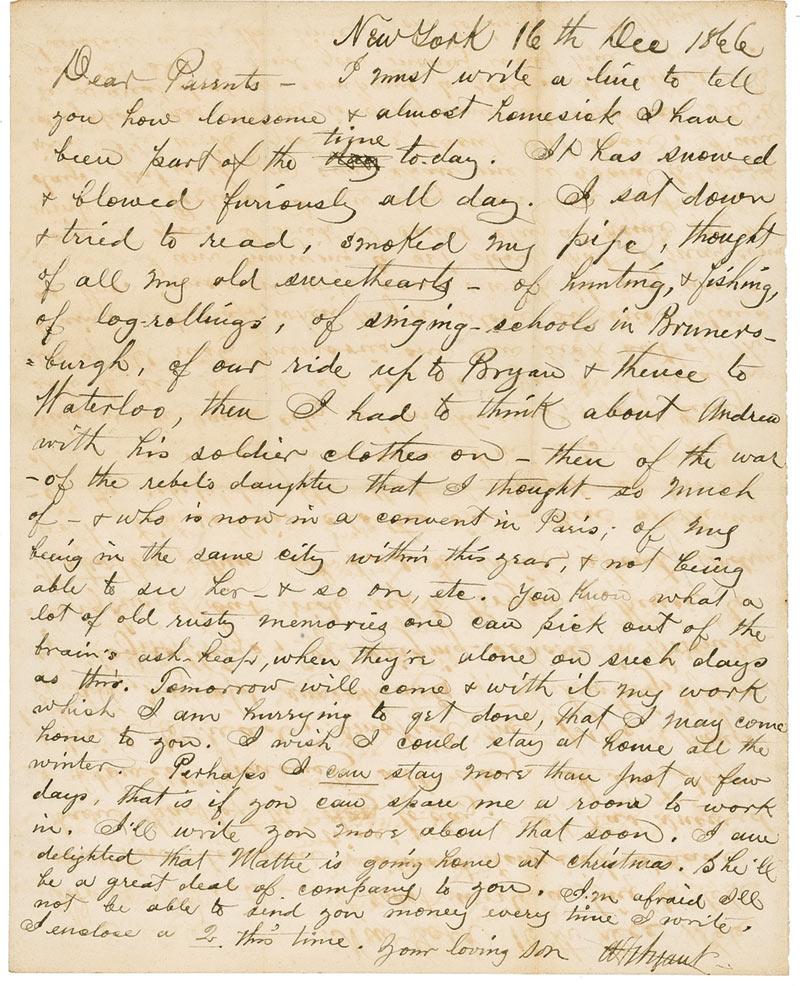 New York 16th Dec 1866
Dear Parents – I must write a line to tell
you how lonesome & almost homesick I have
time
been part of the to-day. It has snowed
& blowed furiously all day. I sat down
& tried to read, smoked my pipe, thought
of all my old sweethearts – of hunting, & fishing,
of log-rollings, of singing-schools in Bruners-
=burgh, of our ride up to Bryan & thence to
Waterloo, then I had to think about Andrew
with his soldier clothes on – then of the war
– of the rebel's daughter that I thought so much
of – & who is now in a convent in Paris; of my
being in the same city within this year, & not being
able to see her – & so on, etc. You know what a
lot of old rusty memories one can pick out of the
brain's ash-heap, when they're alone on such days
as this. Tomorrow will come & with it my work
which I am hurrying to get done, that I may come
home to you. I wish I could stay at home all the
winter. Perhaps I can stay more than just a few
days, that is if you can spare me a room to work
in. I'll write you more about that soon. I am
delighted that Mattie is going home at christmas. She'll
be a great deal of company to you. I'm afraid I'll
not be able to send you money every time I write.
I enclose a 2. this time. Your loving son